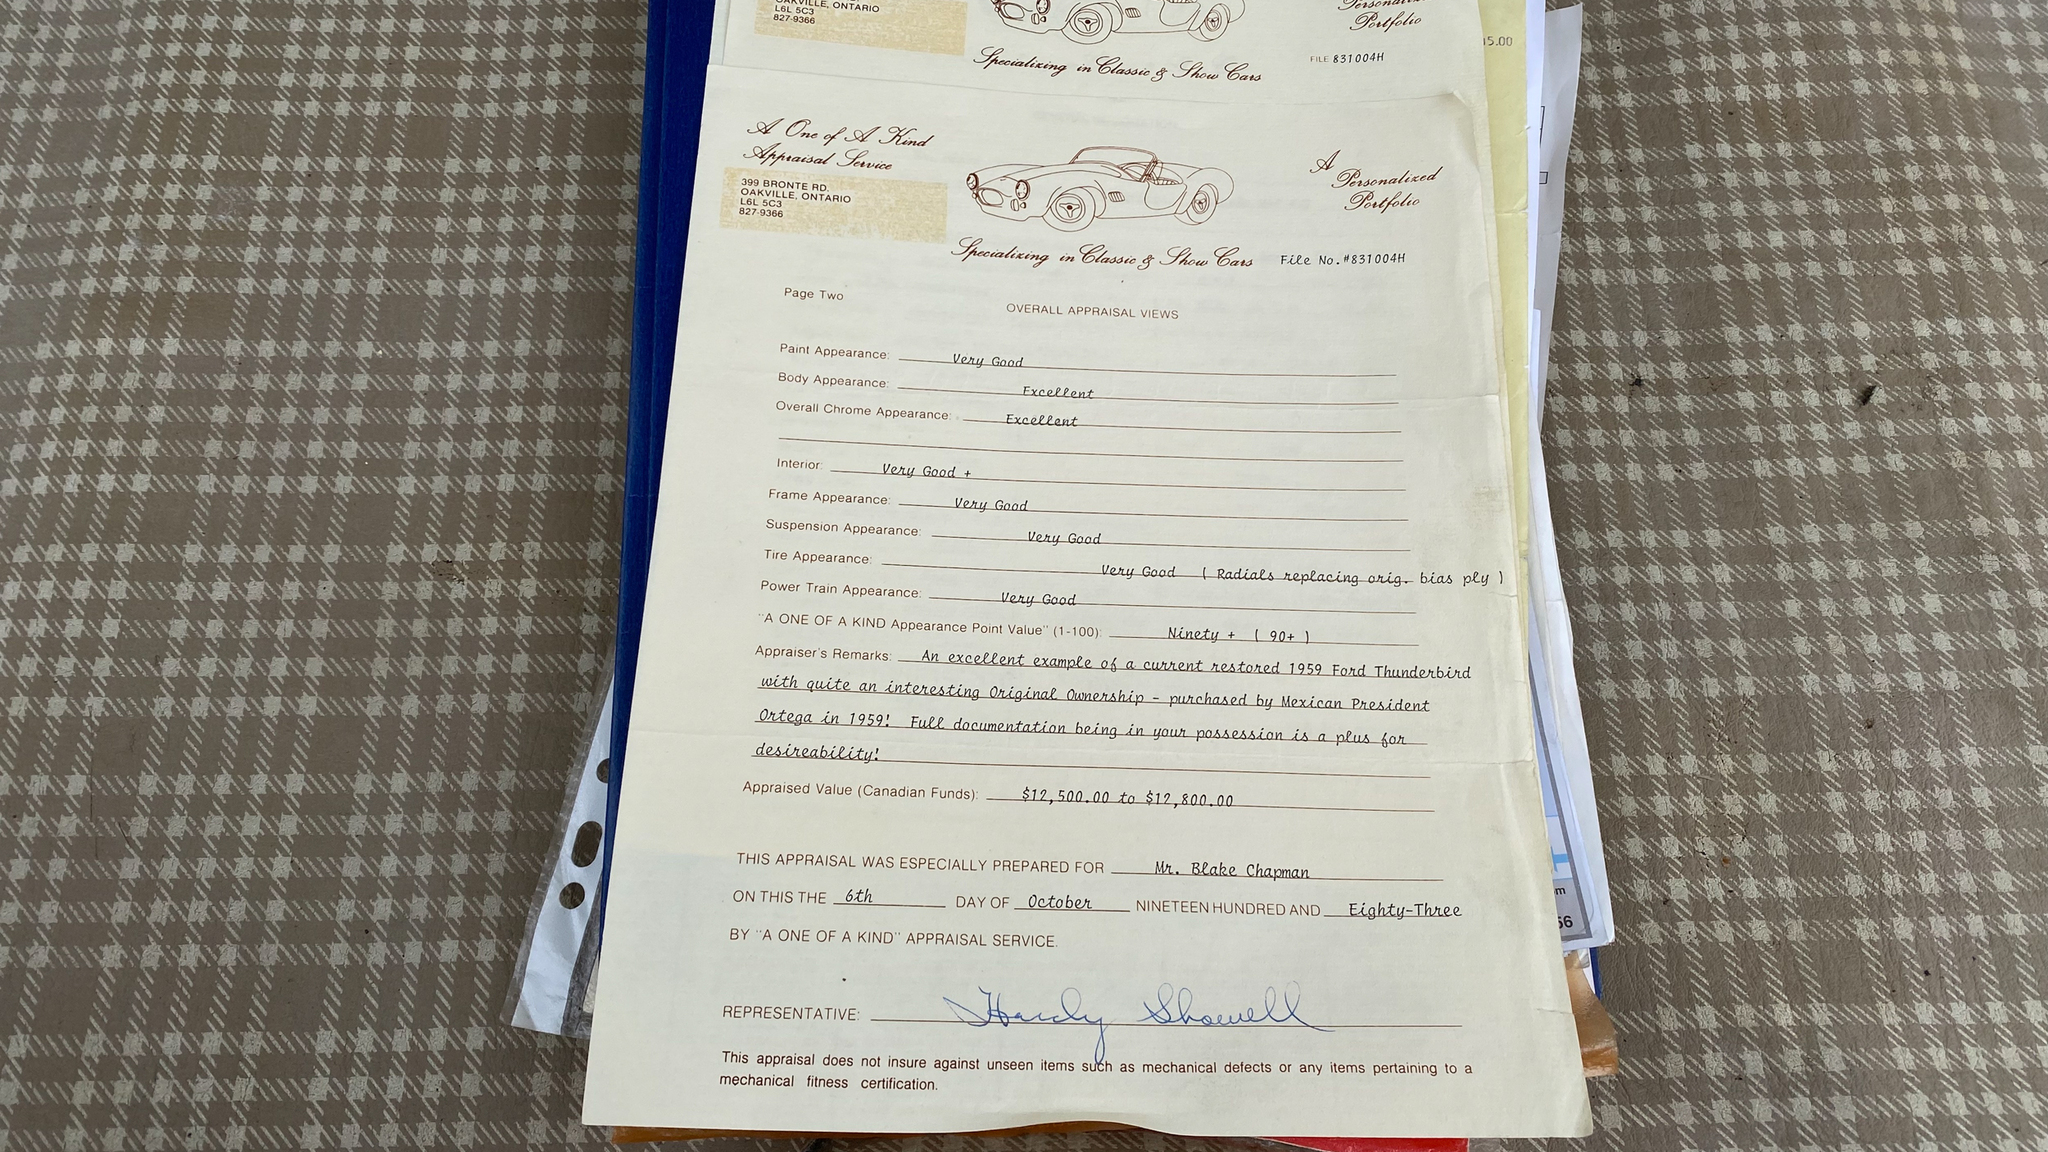 OAKVILLE, ONTARIO
L6L 5C3
827-9366
Personalized
Portfolio
Specializing in Classic & Show Cars
FILE 831004H
A One of A Kind
Appraisal Service
399 BRONTE RD.
OAKVILLE, ONTARIO
L6L 5C3
827-9366
A
Personalized
Portfolio
Specializing in Classic & Show Cars File No.#831004H
Page Two
OVERALL APPRAISAL VIEWS
Paint Appearance: Very Good
Body Appearance: Excellent
Overall Chrome Appearance: Excellent
Interior: Very Good +
Frame Appearance: Very Good
Suspension Appearance: Very Good
Tire Appearance: Very Good ( Radials replacing orig. bias ply )
Power Train Appearance: Very Good
"A ONE OF A KIND Appearance Point Value" (1-100): Ninety + ( 90+ )
Appraiser's Remarks: An excellent example of a current restored 1959 Ford Thunderbird
with quite an interesting Original Ownership - purchased by Mexican President
Ortega in 1959! Full documentation being in your possession is a plus for
desireability!
Appraised Value (Canadian Funds): $12,500.00 to $12,800.00
THIS APPRAISAL WAS ESPECIALLY PREPARED FOR Mr. Blake Chapman
ON THIS THE 6th DAY OF October NINETEEN HUNDRED AND Eighty-Three
BY "A ONE OF A KIND" APPRAISAL SERVICE.
REPRESENTATIVE: Hardy Showell
This appraisal does not insure against unseen items such as mechanical defects or any items pertaining to a
mechanical fitness certification.